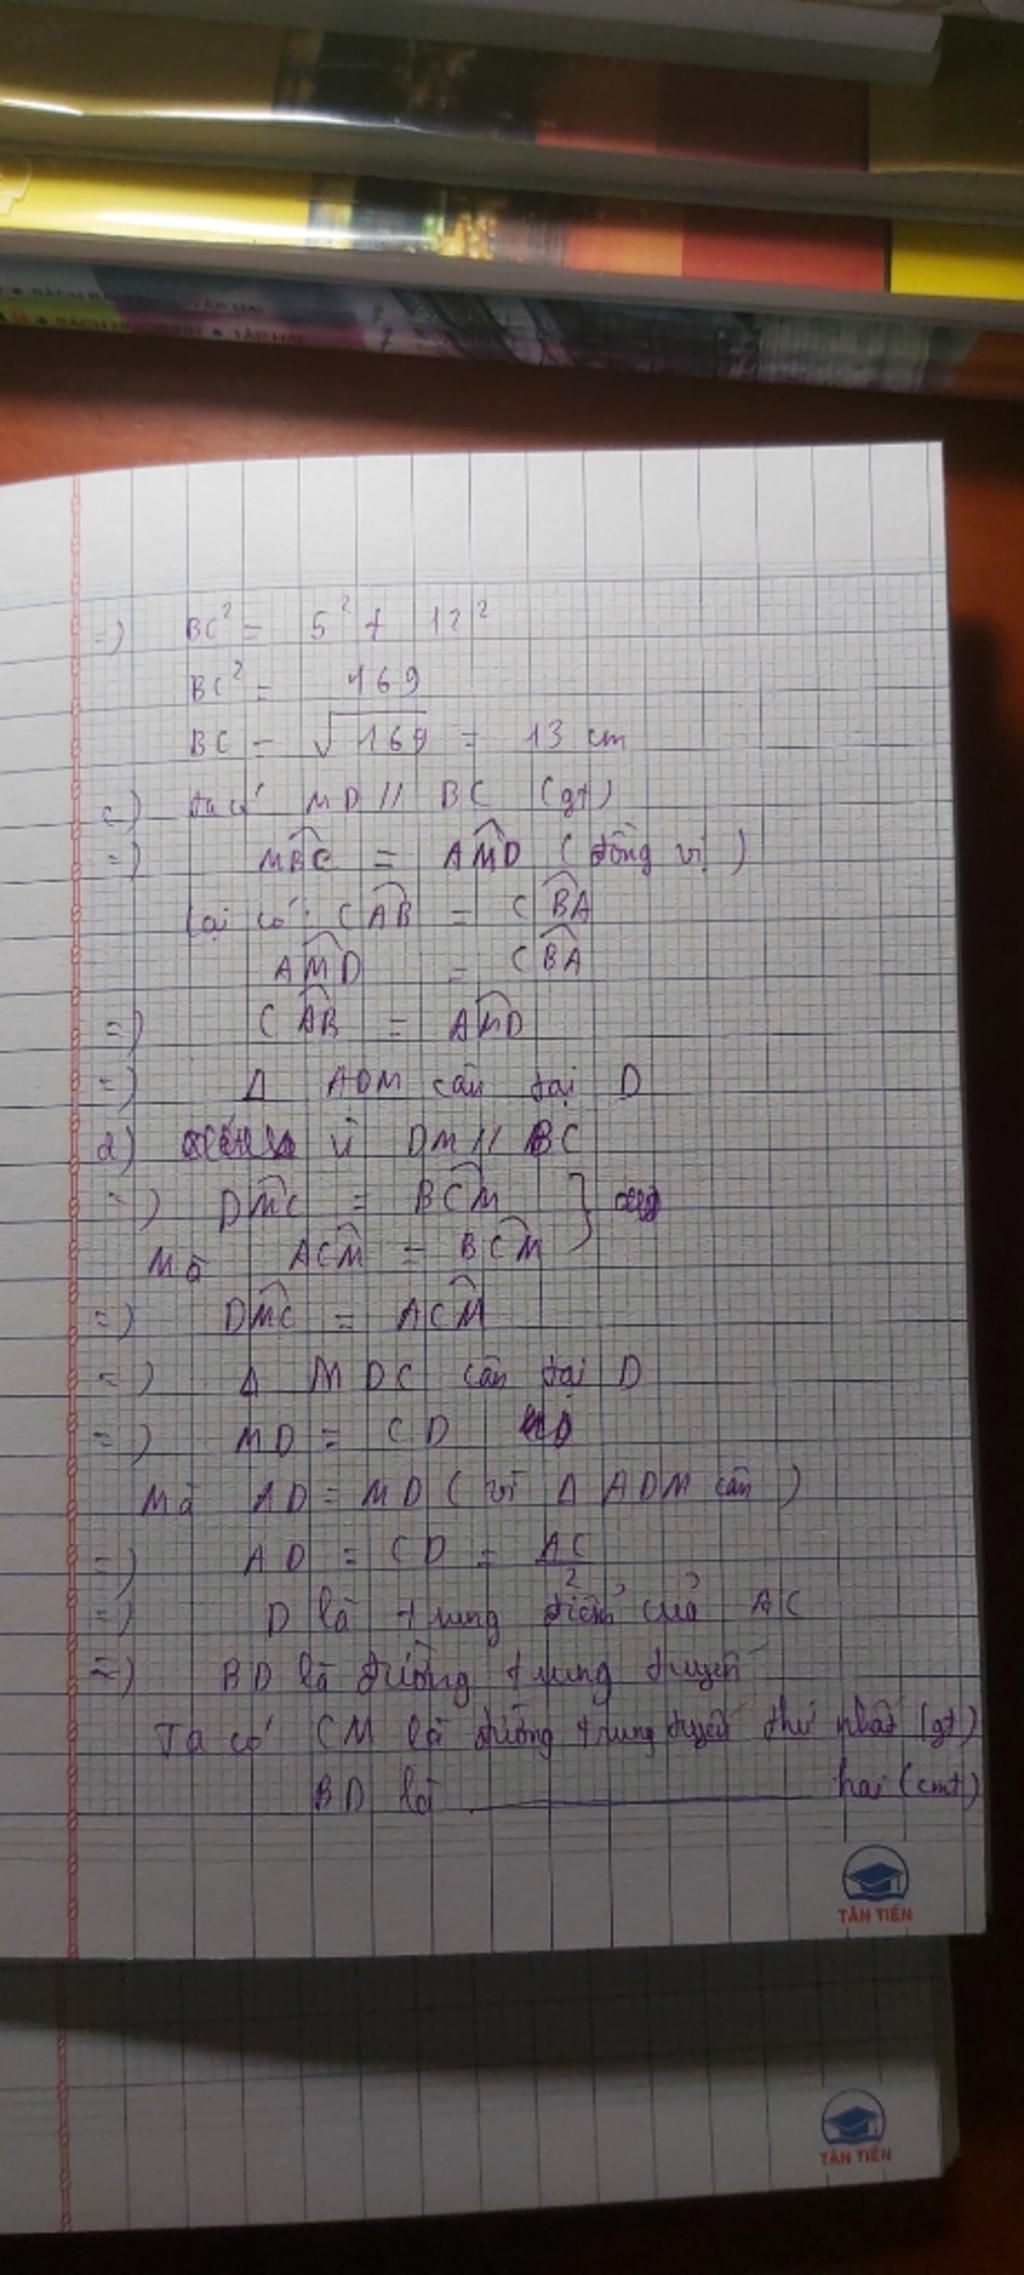 SÁCH BÀI TẬP • TẬP HAI
TẬP HAI
=) BC² = 5² + 12²
BC² = 169
BC = √169 = 13 cm
c) ta có MD // BC (gt)
=) MBC = AMD (đồng vị)
Lại có: CAB = CBA
AMD = CBA
=) CAB = AMD
=) Δ ADM cân tại D
d) Vì DM // BC
=) DMC = BCM
Mà ACM = BCM
=) DMC = ACM
=) Δ MDC cân tại D
=) MD = CD
Mà AD = MD (vì Δ ADM cân)
=) AD = CD = AC/2
=) D là trung điểm của AC
=) BD là đường trung tuyến
Ta có CM là đường trung tuyến thứ nhất (gt)
BD là hai (cmt)
TÂN TIẾN
TÂN TIẾN